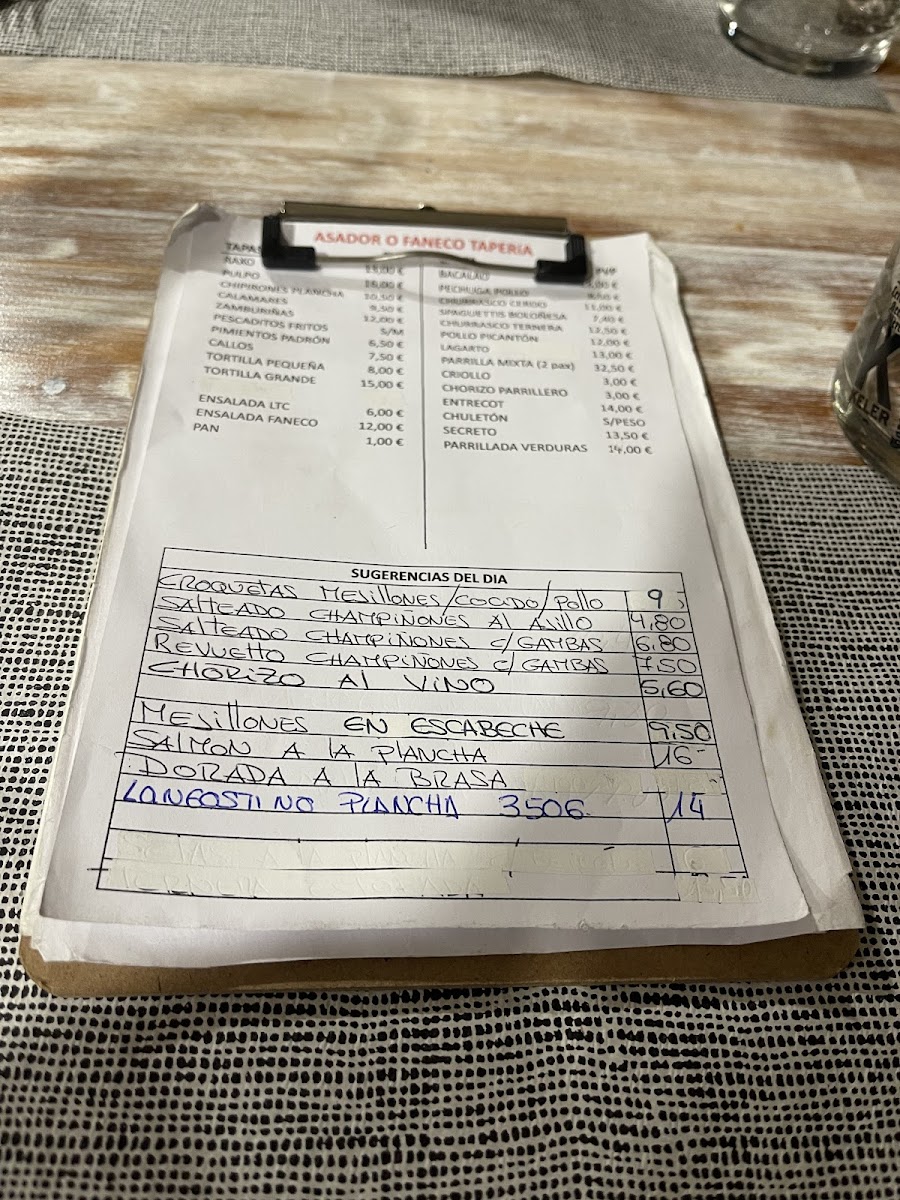 ASADOR O FANECO TAPERIA
TAPAS
RAXO
PULPO 16,00 €
CHIPIRONES PLANCHA 10,50 €
CALAMARES 9,50 €
ZAMBURIÑAS 12,00 €
PESCADITOS FRITOS S/M
PIMIENTOS PADRÓN 6,50 €
CALLOS 7,50 €
TORTILLA PEQUEÑA 8,00 €
TORTILLA GRANDE 15,00 €
ENSALADA LTC 6,00 €
ENSALADA FANECO 12,00 €
PAN 1,00 €
BACALAO
PECHUGA POLLO
CHURRASCO CERDO 11,00 €
SPAGUETTIS BOLOÑESA
CHURRASCO TERNERA 12,50 €
POLLO PICANTÓN 12,00 €
LAGARTO 13,00 €
PARRILLA MIXTA (2 pax) 32,50 €
CRIOLLO 3,00 €
CHORIZO PARRILLERO 3,00 €
ENTRECOT 14,00 €
CHULETÓN S/PESO
SECRETO 13,50 €
PARRILLADA VERDURAS 14,00 €
SUGERENCIAS DEL DIA
CROQUETAS MEJILLONES/COCIDO/POLLO 9,
SALTEADO CHAMPIÑONES AL AJILLO 4,80
SALTEADO CHAMPIÑONES C/GAMBAS 6,80
REVUELTO CHAMPIÑONES C/ GAMBAS 7,50
CHORIZO AL VINO 5,60
MEJILLONES EN ESCABECHE 9,50
SALMON A LA PLANCHA 16-
DORADA A LA BRASA
LANGOSTINO PLANCHA 350G. 14
KELER